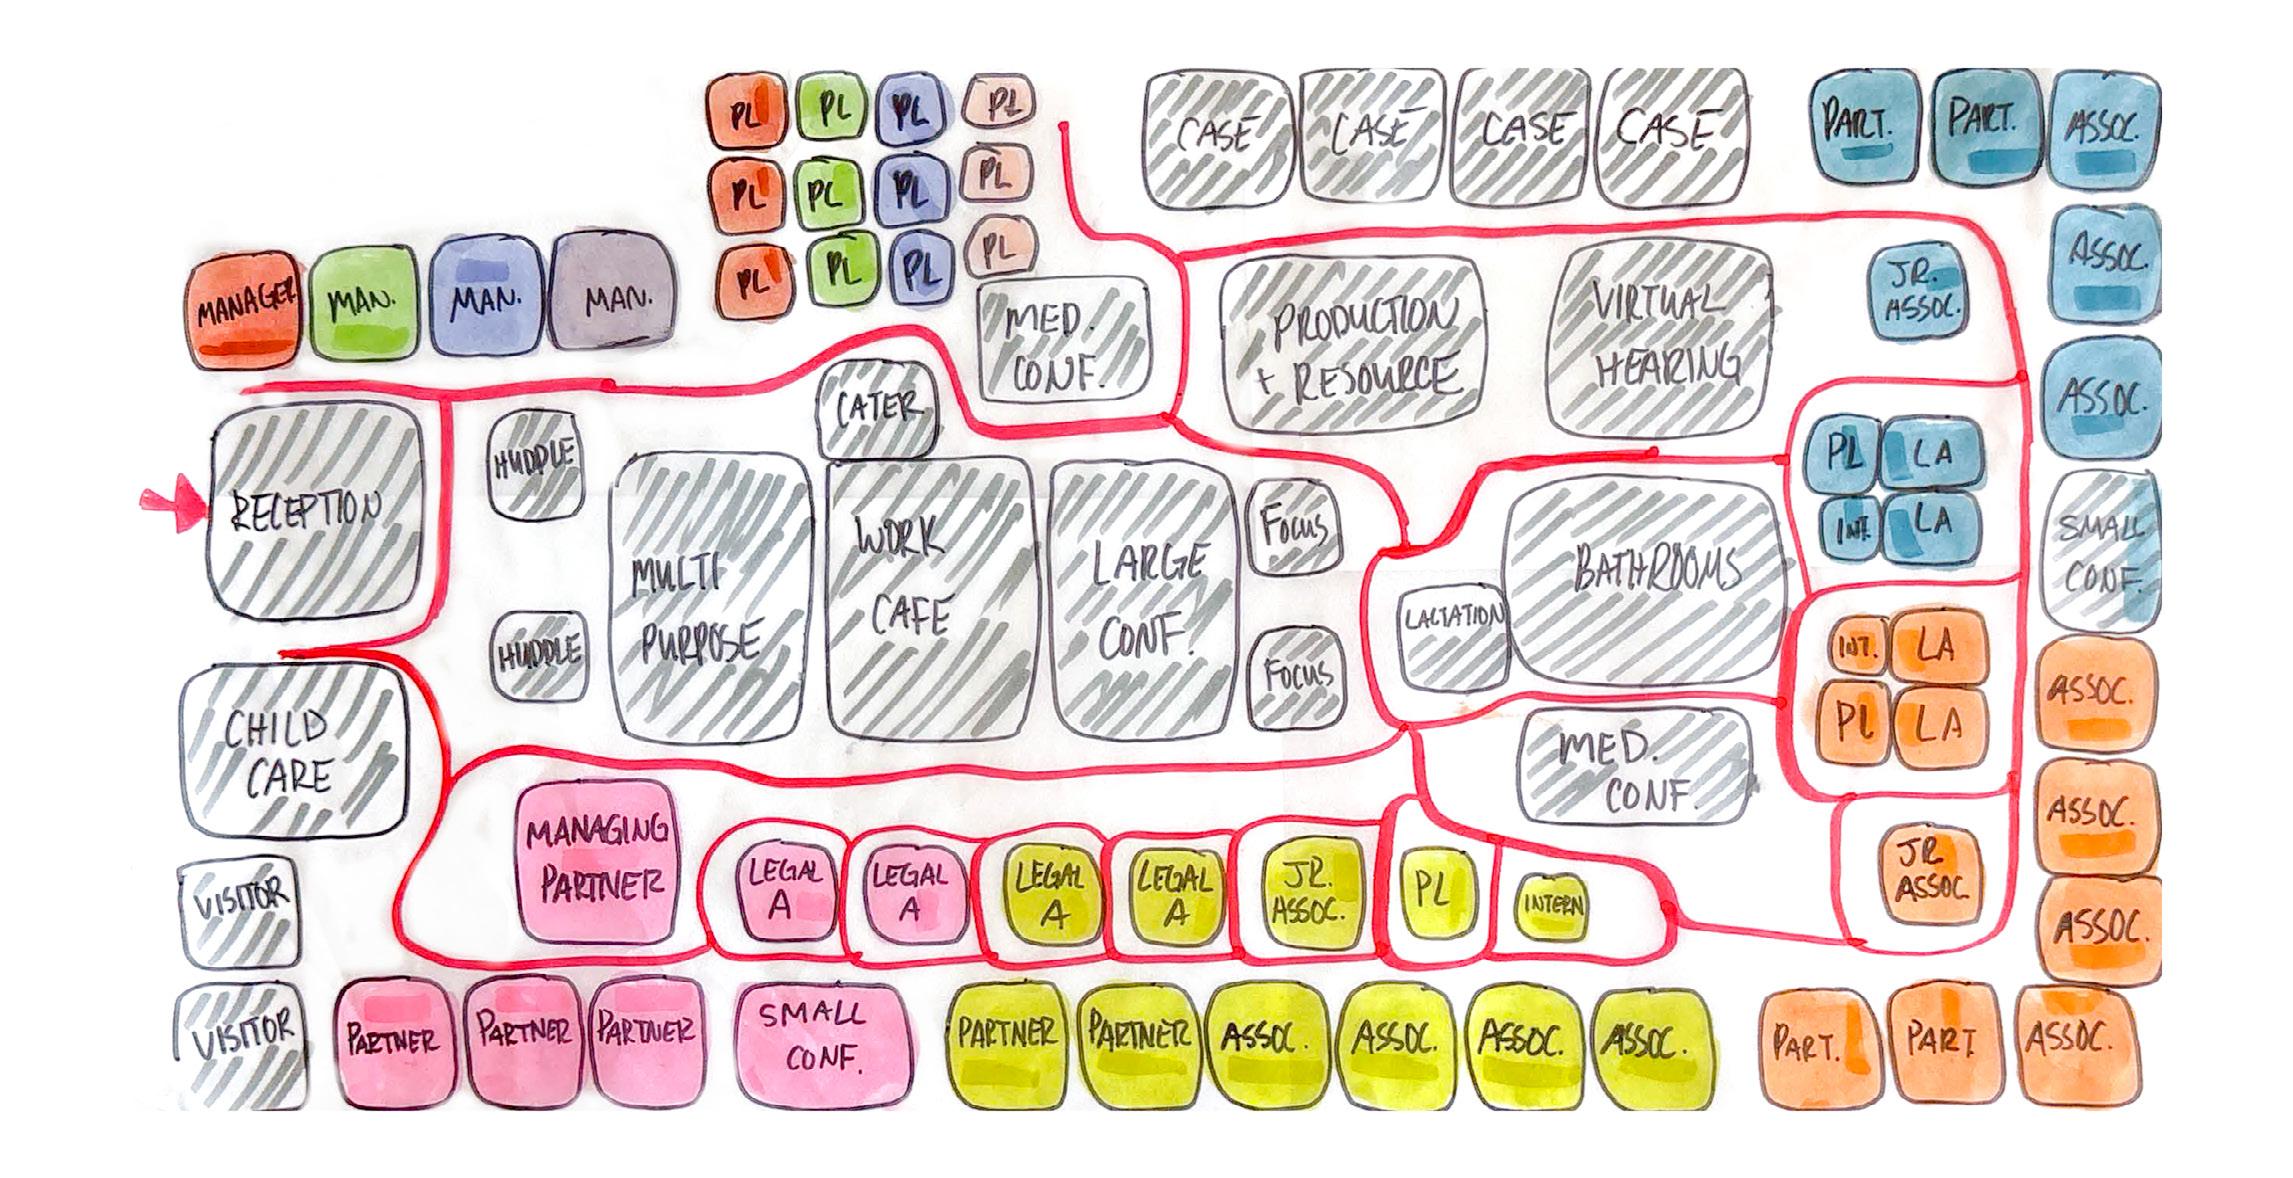 PL PL PL PL
PL PL PL PL
PL PL PL PL
CASE CASE CASE CASE
PART. PART. ASSOC.
MANAGER MAN. MAN. MAN.
MED.
CONF.
PRODUCTION
+ RESOURCE
VIRTUAL
HEARING
JR.
ASSOC.
ASSOC.
ASSOC.
RECEPTION
HUDDLE
HUDDLE
CATER
MULTI
PURPOSE
WORK
CAFE
LARGE
CONF.
FOCUS
FOCUS
LACTATION
BATHROOMS
PL LA
INT. LA
SMALL
CONF.
INT. LA
PL LA
ASSOC.
ASSOC.
ASSOC.
CHILD
CARE
MED.
CONF.
JR
ASSOC
MANAGING
PARTNER
LEGAL
A
LEGAL
A
LEGAL
A
LEGAL
A
JR.
ASSOC.
PL
INTERN
VISITOR
VISITOR
PARTNER PARTNER PARTNER
SMALL
CONF.
PARTNER PARTNER ASSOC. ASSOC. ASSOC. ASSOC.
PART. PART. ASSOC.